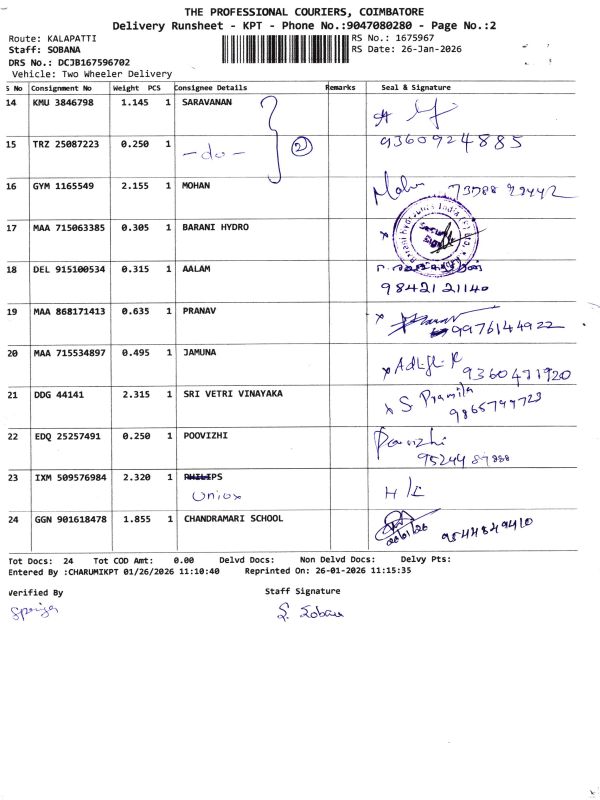 THE PROFESSIONAL COURIERS, COIMBATORE
Delivery Runsheet - KPT - Phone No.:9047080280 - Page No.:2
Route: KALAPATTI RS No.: 1675967
Staff: SOBANA RS Date: 26-Jan-2026
DRS No.: DCJB167596702
Vehicle: Two Wheeler Delivery
S No Consignment No Weight PCS Consignee Details Remarks Seal & Signature
14 KMU 3846798 1.145 1 SARAVANAN
15 TRZ 25087223 0.250 1 -do- 2 9360924885
16 GYM 1165549 2.155 1 MOHAN
17 MAA 715063385 0.305 1 BARANI HYDRO x
18 DEL 915100534 0.315 1 AALAM
98421 21140
19 MAA 868171413 0.635 1 PRANAV x Pranav 9976144922
20 MAA 715534897 0.495 1 JAMUNA x 9360471920
21 DDG 44141 2.315 1 SRI VETRI VINAYAKA x S Pramila
22 EDQ 25257491 0.250 1 POOVIZHI Poovizhi
23 IXM 509576984 2.320 1 PHILIPS
Uniox H/L
24 GGN 901618478 1.855 1 CHANDRAMARI SCHOOL 26/01/26 9544849410
Tot Docs: 24 Tot COD Amt: 0.00 Delvd Docs: Non Delvd Docs: Delvy Pts:
Entered By :CHARUMIKPT 01/26/2026 11:10:40 Reprinted On: 26-01-2026 11:15:35
Verified By Staff Signature
Spriya S. Soban